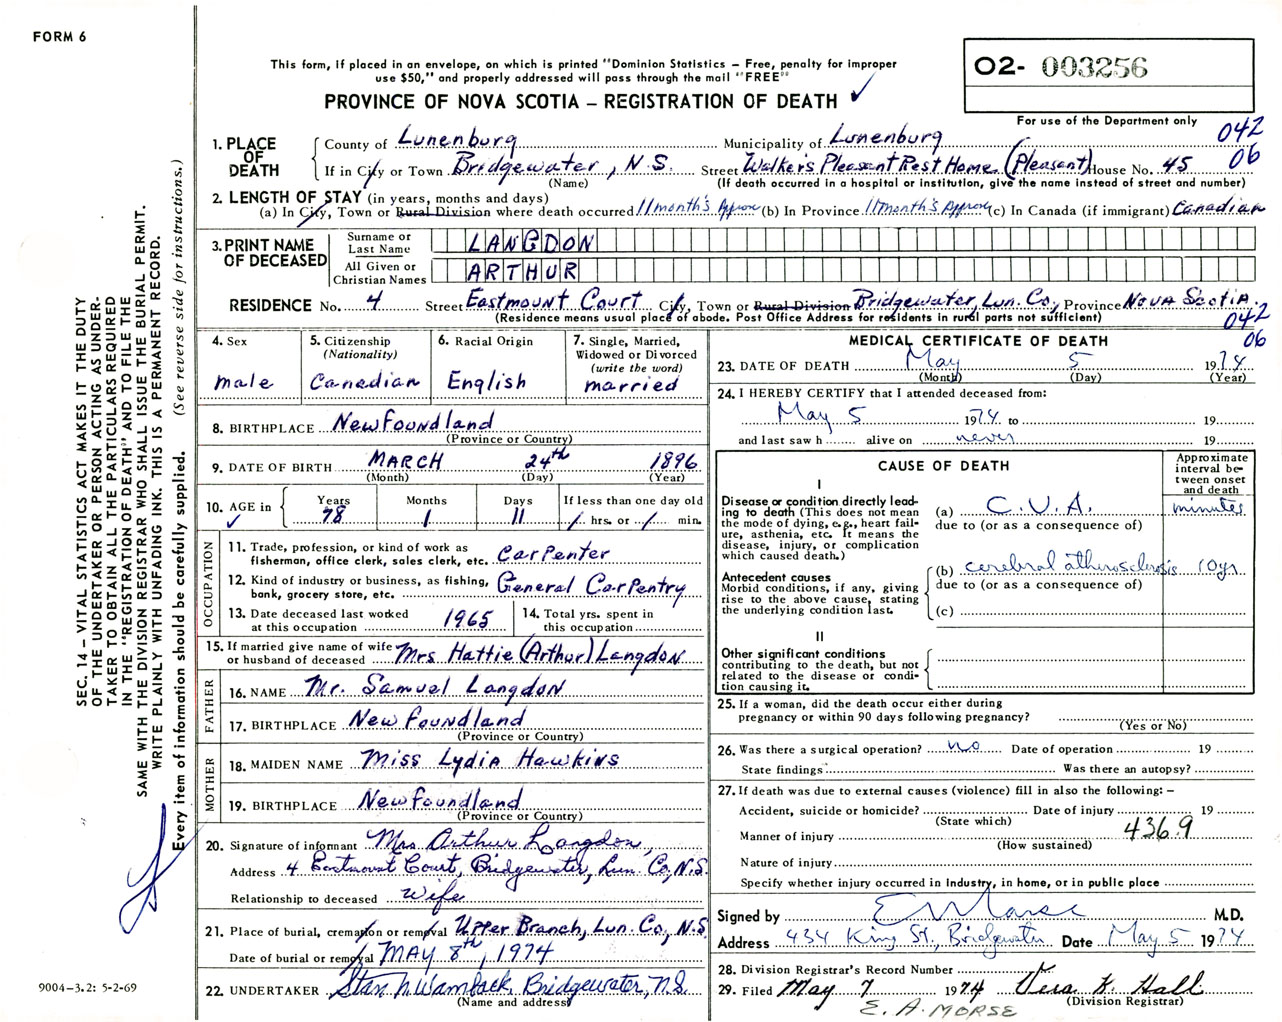 FORM 6
This form, if placed in an envelope, on which is printed "Dominion Statistics – Free, penalty for improper
use $50," and properly addressed will pass through the mail "FREE"
PROVINCE OF NOVA SCOTIA – REGISTRATION OF DEATH ✓
O2- 003256
For use of the Department only
042
06
1. PLACE OF DEATH
County of Lunenburg Municipality of Lunenburg
If in City or Town Bridgewater, N.S. Street Walker's Pleasant Rest Home (Pleasant) House No. 45
(Name) (If death occurred in a hospital or institution, give the name instead of street and number)
2. LENGTH OF STAY (in years, months and days)
(a) In City, Town or Rural Division where death occurred 11 month's Approx (b) In Province 11 month's Approx (c) In Canada (if immigrant) Canadian
3. PRINT NAME OF DECEASED
Surname or Last Name LANGDON
All Given or Christian Names ARTHUR
RESIDENCE No. 4 Street Eastmount Court City, Town or Rural Division Bridgewater, Lun. Co., Province Nova Scotia.
(Residence means usual place of abode. Post Office Address for residents in rural parts not sufficient)
042
06
4. Sex
male
5. Citizenship (Nationality)
Canadian
6. Racial Origin
English
7. Single, Married, Widowed or Divorced (write the word)
married
8. BIRTHPLACE Newfoundland
(Province or Country)
9. DATE OF BIRTH MARCH 24th 1896
(Month) (Day) (Year)
10. AGE in ✓
Years Months Days If less than one day old
78 1 11 / hrs. or / min.
OCCUPATION
11. Trade, profession, or kind of work as
fisherman, office clerk, sales clerk, etc. Carpenter
12. Kind of industry or business, as fishing,
bank, grocery store, etc. General Carpentry
13. Date deceased last worked
at this occupation 1965
14. Total yrs. spent in
this occupation
15. If married give name of wife
or husband of deceased Mrs Hattie (Arthur) Langdon
FATHER
16. NAME Mr. Samuel Langdon
17. BIRTHPLACE Newfoundland
(Province or Country)
MOTHER
18. MAIDEN NAME Miss Lydia Hawkins
19. BIRTHPLACE Newfoundland
(Province or Country)
20. Signature of informant Mrs. Arthur Langdon,
Address 4 Eastmount Court, Bridgewater, Lun. Co, N.S.
Relationship to deceased Wife
21. Place of burial, cremation or removal Upper Branch, Lun. Co., N.S.
Date of burial or removal MAY 8th, 1974
22. UNDERTAKER Bridgewater, N.S.
(Name and address)
MEDICAL CERTIFICATE OF DEATH
23. DATE OF DEATH May 5 1974
(Month) (Day) (Year)
24. I HEREBY CERTIFY that I attended deceased from:
May 5 1974 to 19
and last saw h alive on never 19
CAUSE OF DEATH
Approximate interval between onset and death
I
Disease or condition directly lead-
ing to death (This does not mean
the mode of dying, e.g., heart fail-
ure, asthenia, etc. It means the
disease, injury, or complication
which caused death.)
(a) C.V.A. minutes
due to (or as a consequence of)
Antecedent causes
Morbid conditions, if any, giving
rise to the above cause, stating
the underlying condition last.
(b) cerebral atherosclerosis 10yr
due to (or as a consequence of)
(c)
II
Other significant conditions
contributing to the death, but not
related to the disease or condi-
tion causing it.
25. If a woman, did the death occur either during
pregnancy or within 90 days following pregnancy?
(Yes or No)
26. Was there a surgical operation? no Date of operation 19
State findings Was there an autopsy?
27. If death was due to external causes (violence) fill in also the following: –
Accident, suicide or homicide? Date of injury 19
(State which)
Manner of injury 436.9
(How sustained)
Nature of injury
Specify whether injury occurred in industry, in home, or in public place
Signed by E Morse M.D.
Address 434 King St., Bridgewater Date May 5 1974
28. Division Registrar's Record Number
29. Filed May 7 1974 Vera K. Hall
(Division Registrar)
E. A. MORSE
SEC. 14 – VITAL STATISTICS ACT MAKES IT THE DUTY
OF THE UNDERTAKER OR PERSON ACTING AS UNDER-
TAKER TO OBTAIN ALL THE PARTICULARS REQUIRED
IN THE "REGISTRATION OF DEATH" AND TO FILE THE
SAME WITH THE DIVISION REGISTRAR WHO SHALL ISSUE THE BURIAL PERMIT.
WRITE PLAINLY WITH UNFADING INK. THIS IS A PERMANENT RECORD.
Every item of information should be carefully supplied. (See reverse side for instructions.)
9004-3.2: 5-2-69